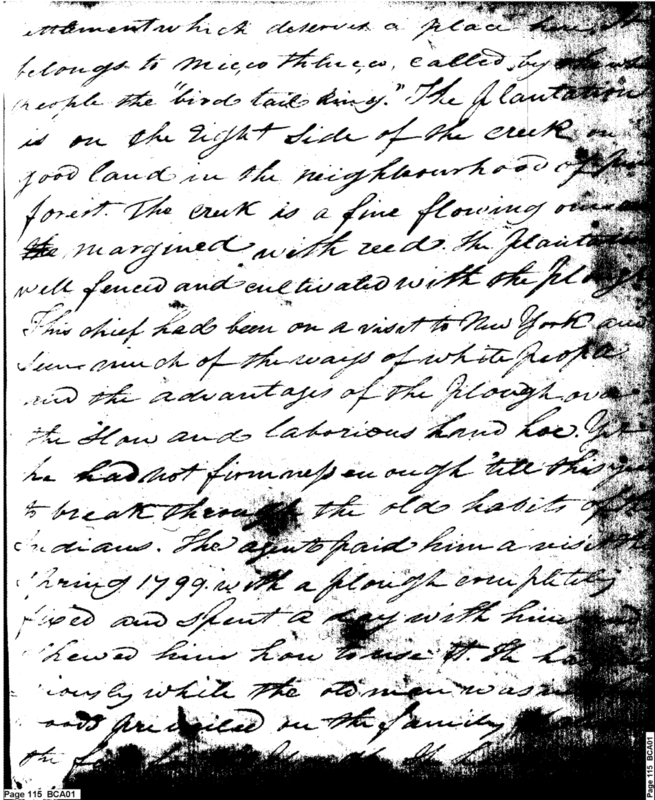 ettlement which deserves a place here. It
belongs to Miccothlucco, called by the white
people the "bird tail King." The plantation
is on the right side of the creek on
good land in the neighbourhood of
forest. The creek is a fine flowing
the margined with reed. The plantation
well fenced and cultivated with the plough
This chief had been on a visit to New York and
seen much of the ways of white people
and the advantages of the plough over
the slow and laborious hand hoe. Yet
he had not firmness enough 'till this year
to break through the old habits of the
Indians. The agent paid him a visit this
spring 1799. with a plough completely
fixed and spent a day with him and
shewed him how to use it. He had
iously while the old man was in the
oods prevailed on the family
the
Page 115 BCA01
Page 115 BCA01